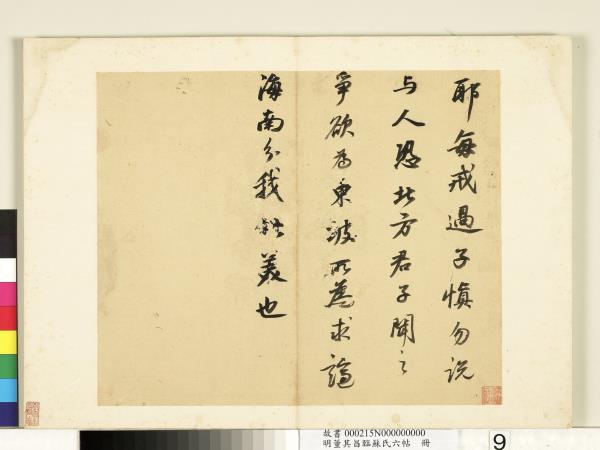 耶每戒過子慎勿説
与人恐北方君子聞之
爭欲為東坡所為求謫
海南分我此美也
故書 000215N000000000
明董其昌臨蘇氏六帖 冊
9